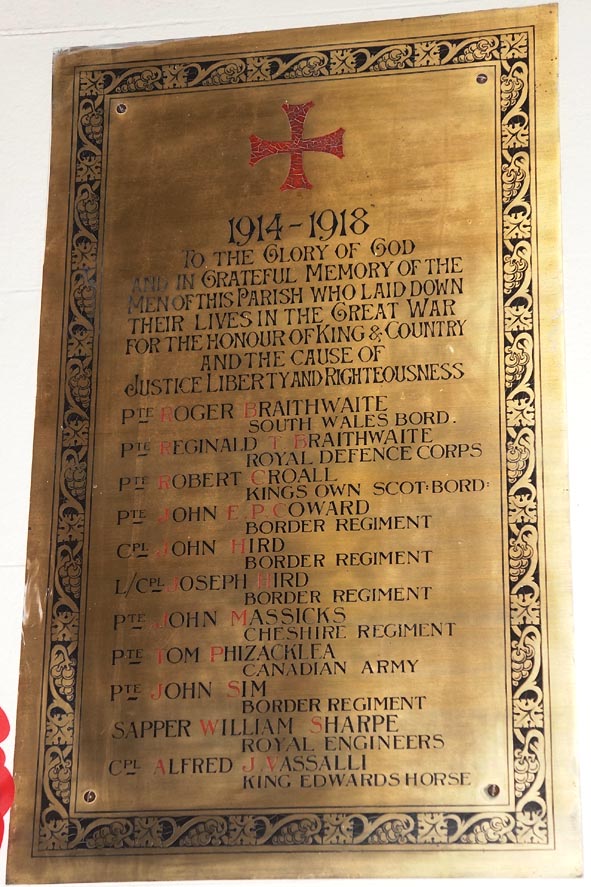 1914-1918
TO THE GLORY OF GOD
AND IN GRATEFUL MEMORY OF THE
MEN OF THIS PARISH WHO LAID DOWN
THEIR LIVES IN THE GREAT WAR
FOR THE HONOUR OF KING & COUNTRY
AND THE CAUSE OF
JUSTICE LIBERTY AND RIGHTEOUSNESS
PTE ROGER BRAITHWAITE
SOUTH WALES BORD.
PTE REGINALD T BRAITHWAITE
ROYAL DEFENCE CORPS
PTE ROBERT CROALL
KINGS OWN SCOT: BORD:
PTE JOHN E.P. COWARD
BORDER REGIMENT
CPL JOHN HIRD
BORDER REGIMENT
L/CPL JOSEPH HIRD
BORDER REGIMENT
PTE JOHN MASSICKS
CHESHIRE REGIMENT
PTE TOM PHIZACKLEA
CANADIAN ARMY
PTE JOHN SIM
BORDER REGIMENT
SAPPER WILLIAM SHARPE
ROYAL ENGINEERS
CPL ALFRED J VASSALLI
KING EDWARDS HORSE